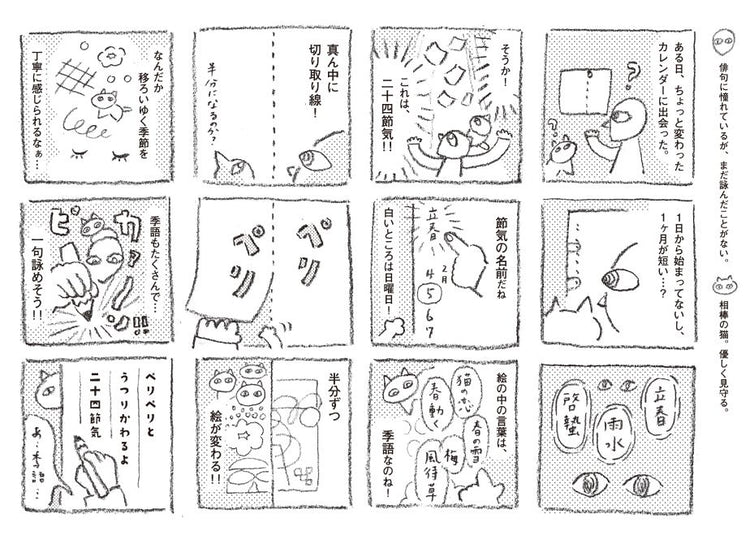 俳句に憧れているが、まだ詠んだことがない。
相棒の猫。優しく見守る。
ある日、ちょっと変わった
カレンダーに出会った。
?
?
1日から始まってないし、
1ヶ月が短い…?
立春
雨水
啓蟄
そうか!
これは、
二十四節気!!
節気の名前だね
立春
2月
4
5
6
7
白いところは日曜日!
絵の中の言葉は、
猫の恋
春動く
春の雪
梅
風待草
季語なのね!
真ん中に
切り取り線!
半分になるのか?
ペリ
ペリ
半分ずつ
絵が変わる!!
なんだか
移ろいゆく季節を
丁寧に感じられるなぁ…
季語もたくさんで…
ピカァーン!!
一句詠めそう!!
ペリペリと
うつりかわるよ
二十四節気
あ…季語…